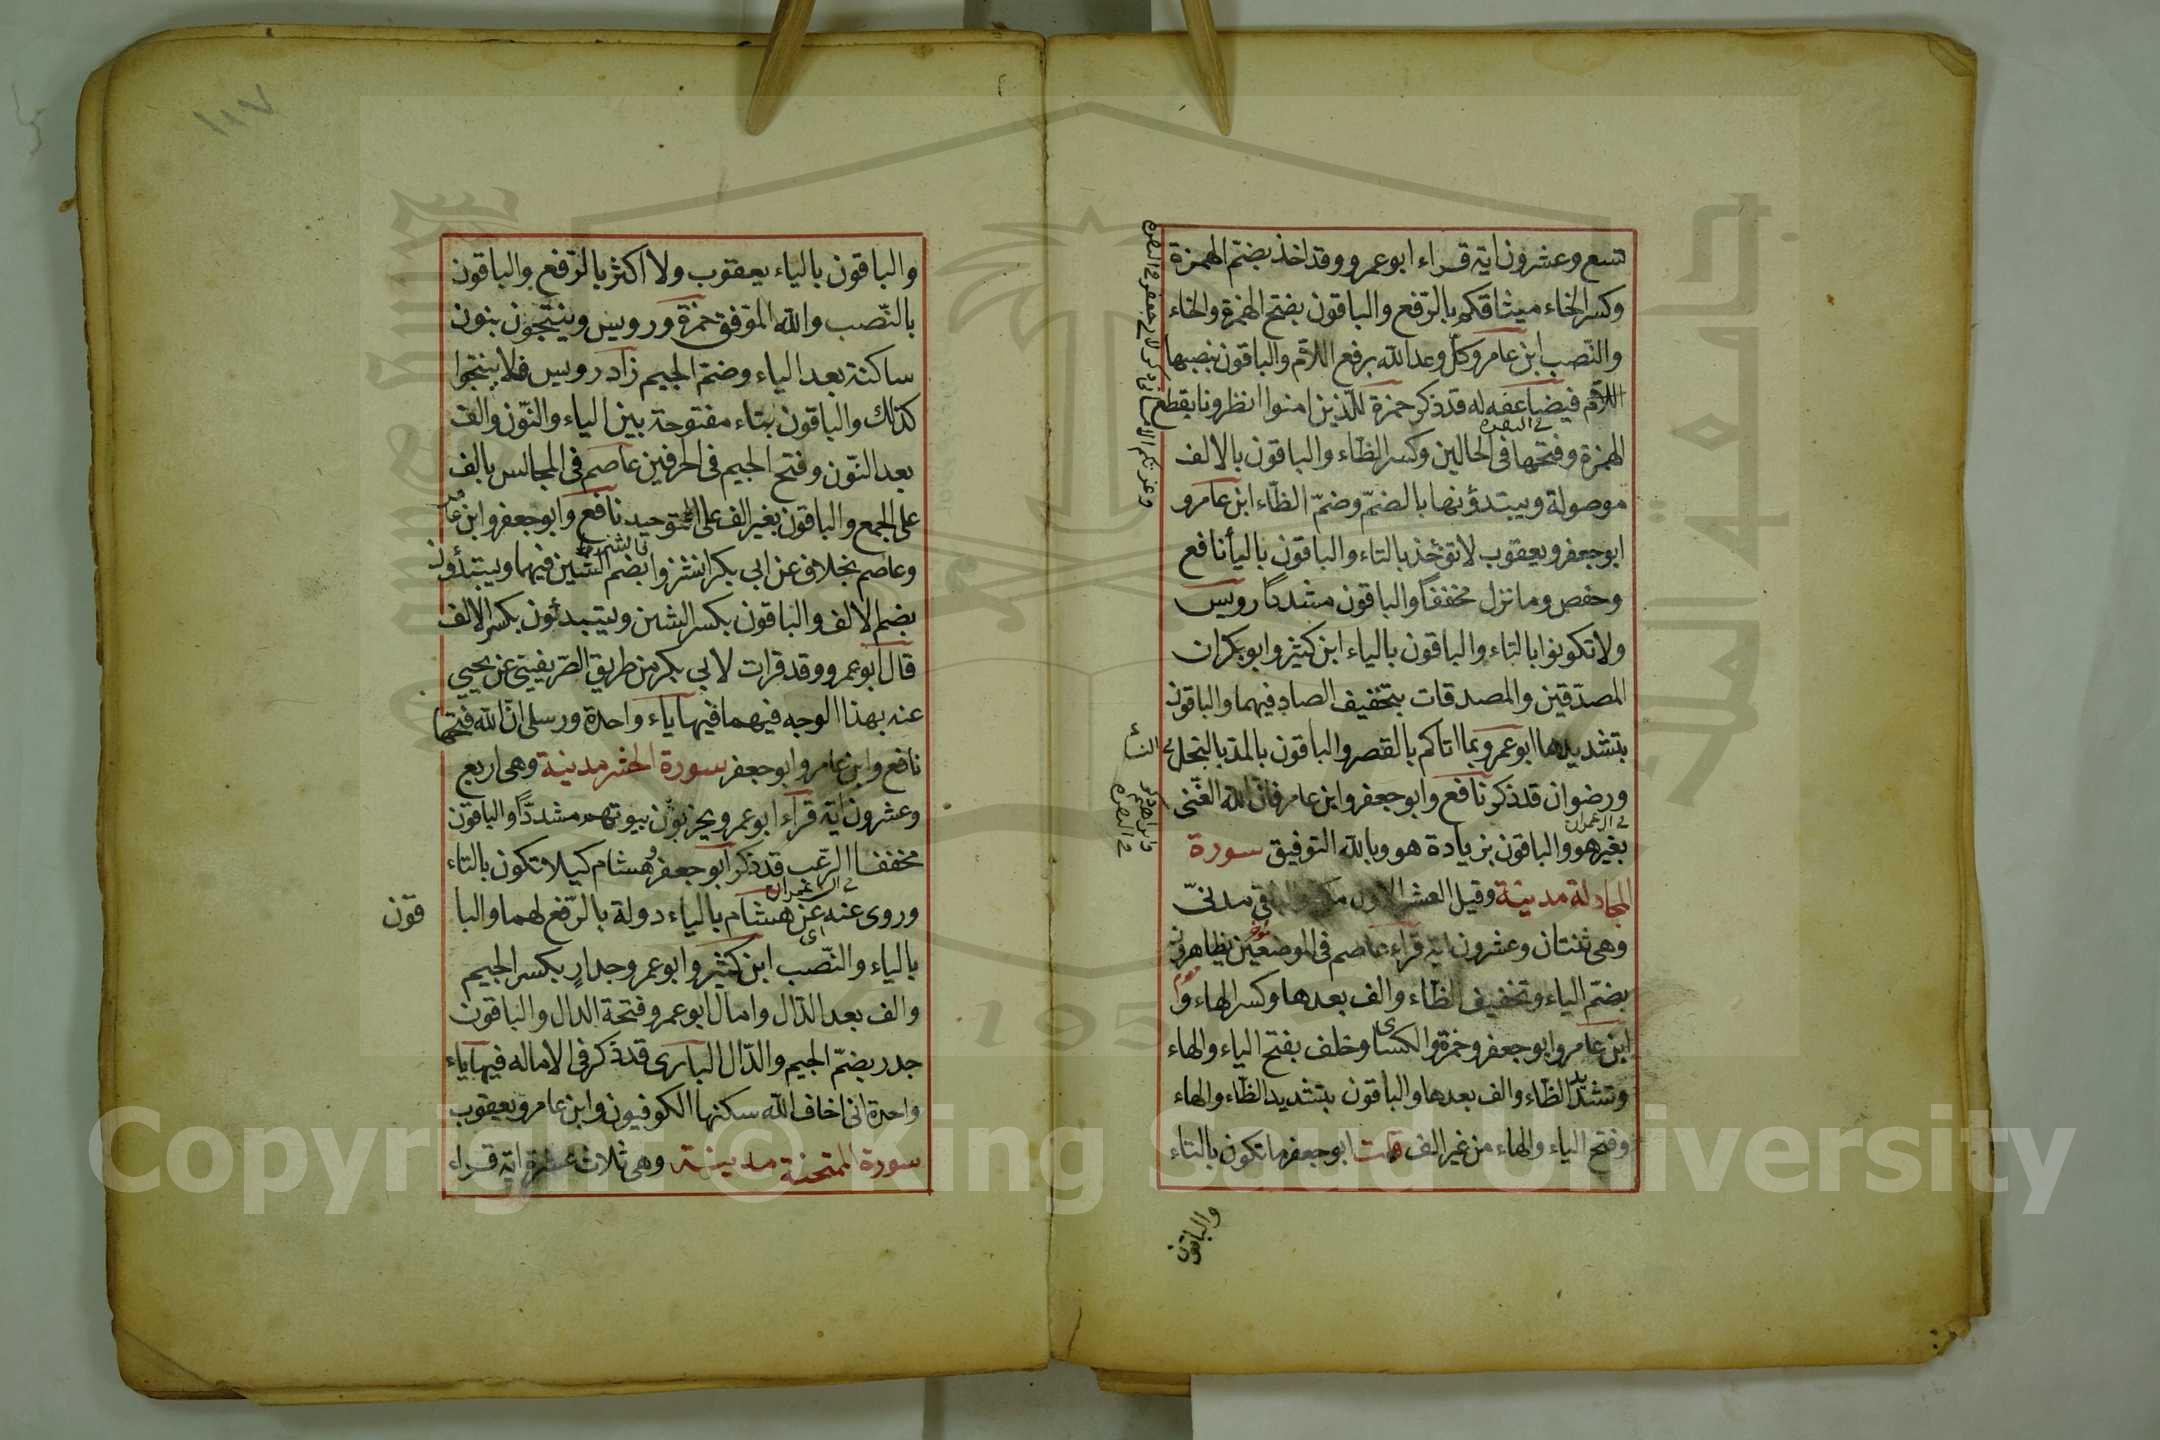 تسع وعشرون اية قراء ابو عمرو وقد اخذ بضم الهمزة
وكسر الخاء ميثاقكم بالرّفع والباقون بفتح الهمزة والخاء
والنّصب ابن عامر وكلّ وعد الله برفع اللاّم والباقون بنصبها
اللاّم فيضاعفه له قد ذكر حمزة للّذين امنوا انظرونا بقطع
في البقرة
الهمزة وفتحها في الحالين وكسر الظّاء والباقون بالالف
موصولة ويبتدؤنها بالضمّ وضمّ الظّاء ابن عامر و
ابو جعفر ويعقوب لا تؤخذ بالتاء والباقون باليأ نافع
وحفص وما نزل مخففاً والباقون مشدداً رويس
ولا تكونوا بالتاء والباقون بالياء ابن كثير وابو بكر ان
المصدّقين والمصدقات بتخفيف الصاد فيهما والباقون
بتشديدها ابو عمرو بما اتاكم بالقصر والباقون بالمد بالبخل
ورضوان قد ذكر نافع وابو جعفر وابن عامر فان الله الغنى
في ال عمران
بغير هو والباقون بزيادة هو وبالله التوفيق سورة
المجادلة مدينة وقيل العشر الاول مدنى
وهى ثنتان وعشرون اية قراء عاصم في الموضعين يظاهرون
بضمّ الياء وتخفيف الظّاء والف بعدها وكسر الهاء و
ابن عامر وابو جعفر وحمزة والكسائى وخلف بفتح الياء والهاء
وتشديد الظّاء والف بعدها والباقون بتشديد الظّاء والهاء
وفتح الياء والهاء من غير الف ابو جعفر ما تكون بالتاء
والباقون
النساء
في البقرة
١١٧
والباقون بالياء يعقوب ولا اكثر بالرّفع والباقون
بالنّصب والله الموّفق حمزة ورويس وينتجون بنون
ساكنة بعد الياء وضمّ الجيم زاد رويس فلا ينتجوا
كذلك والباقون بتاء مفتوحة بين الياء والنّون والف
بعد النّون وفتح الجيم في الحرفين عاصم في المجالس بالف
على الجمع والباقون بغير الف على التوحيد نافع وابو جعفر وابن عامر
وعاصم بخلاف عن ابي بكر انشزوا بضم الشين فيهما ويبتدؤن
بضم الالف والباقون بكسر الشين ويبتدئون بكسر الالف
قال ابو عمرو وقد قرات لابي بكر من طريق الصّريفينى عن يحيى
عنه بهذا الوجه فيهما فيها ياء واحدة ورسلى انّ الله فتحها
نافع وابن عامر وابو جعفر سورة الحشر مدينة وهى اربع
وعشرون اية قراء ابو عمرو يخربون بيوتهم مشدداً والباقون
مخففا الرّعب قد ذكر ابو جعفر وهشام كيلا تكون بالتاء
في ال عمران
وروى عنه عن هشام بالياء دولة بالرّفع لهما والبا
قون
اى
بالياء والنّصب ابن كثير وابو عمرو جدار بكسر الجيم
والف بعد الدّال وامال ابو عمرو فتحة الدال والباقون
جدر بضمّ الجيم والدّال البارى قد ذكر في الاماله فيها ياء
واحدة انى اخاف الله سكنها الكوفيون وابن عامر ويعقوب
سورة الممتحنة مدينة وهى ثلاث عشرة اية قراء
Copyright © King Saud University